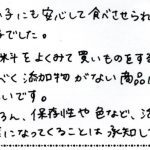 い子にも安心して食べさせられ
でした。
米斗をよくみて買いものをする
べく添加物がない商品に
いです。
ろん、保存性や色など、活
になってくることは承知して